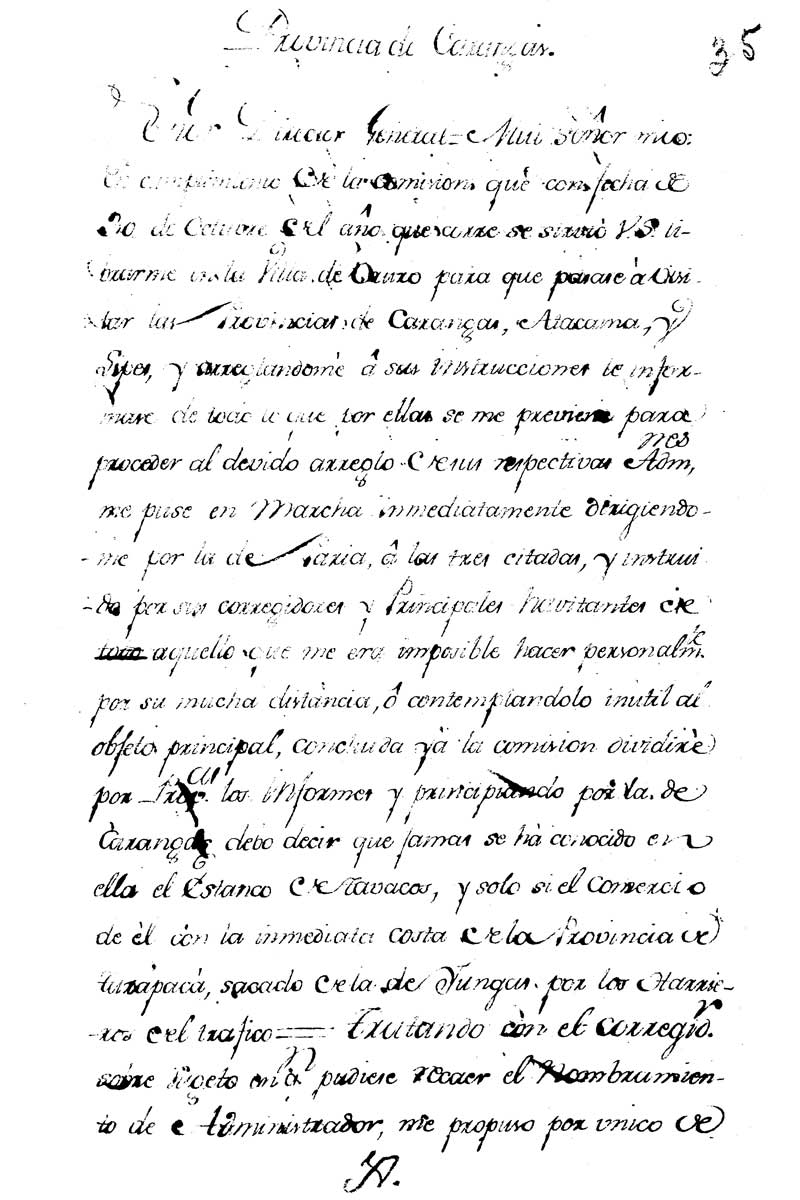 Provincia de Carangas.
35
Señor Director General = Mui Señor mio:
En cumplimiento de la comision què con fecha de
30 de Octubre del año que corre se sirviò V.S. li-
brarme en la Villa de Oruro para que pasase à visi-
tar las Provincias de Carangas, Atacama, y
Lipes, y arreglandome â sus instrucciones le infor-
mase de todo lo que por ellas se me previene para
proceder al devido arreglo de sus respectivas Adm,nes
me puse en Marcha inmediatamente dirigiendo-
me por la de Paria, â las tres citadas, y instrui-
do por sus corregidores y Principales havitantes de
todo aquello que me era imposible hacer personalm.te
por su mucha distancia, ô contemplandolo inutil al
objeto principal, concluida yà la comision dividirè
por Prov.cias los Informes y principiando por la de
Carangas debo decir que jamas se hà conocido en
ella el Estanco de Tavacos, y solo si el Comercio
de èl còn la inmediata costa de la Provincia de
Tarapacà, sacado de la de Yungas por los Harrie-
ros del trafico == Tratando còn el corregid.r
sobre sugeto en q.n pudiese recaer el Nombramien-
to de Administrador, me propuso por unico de